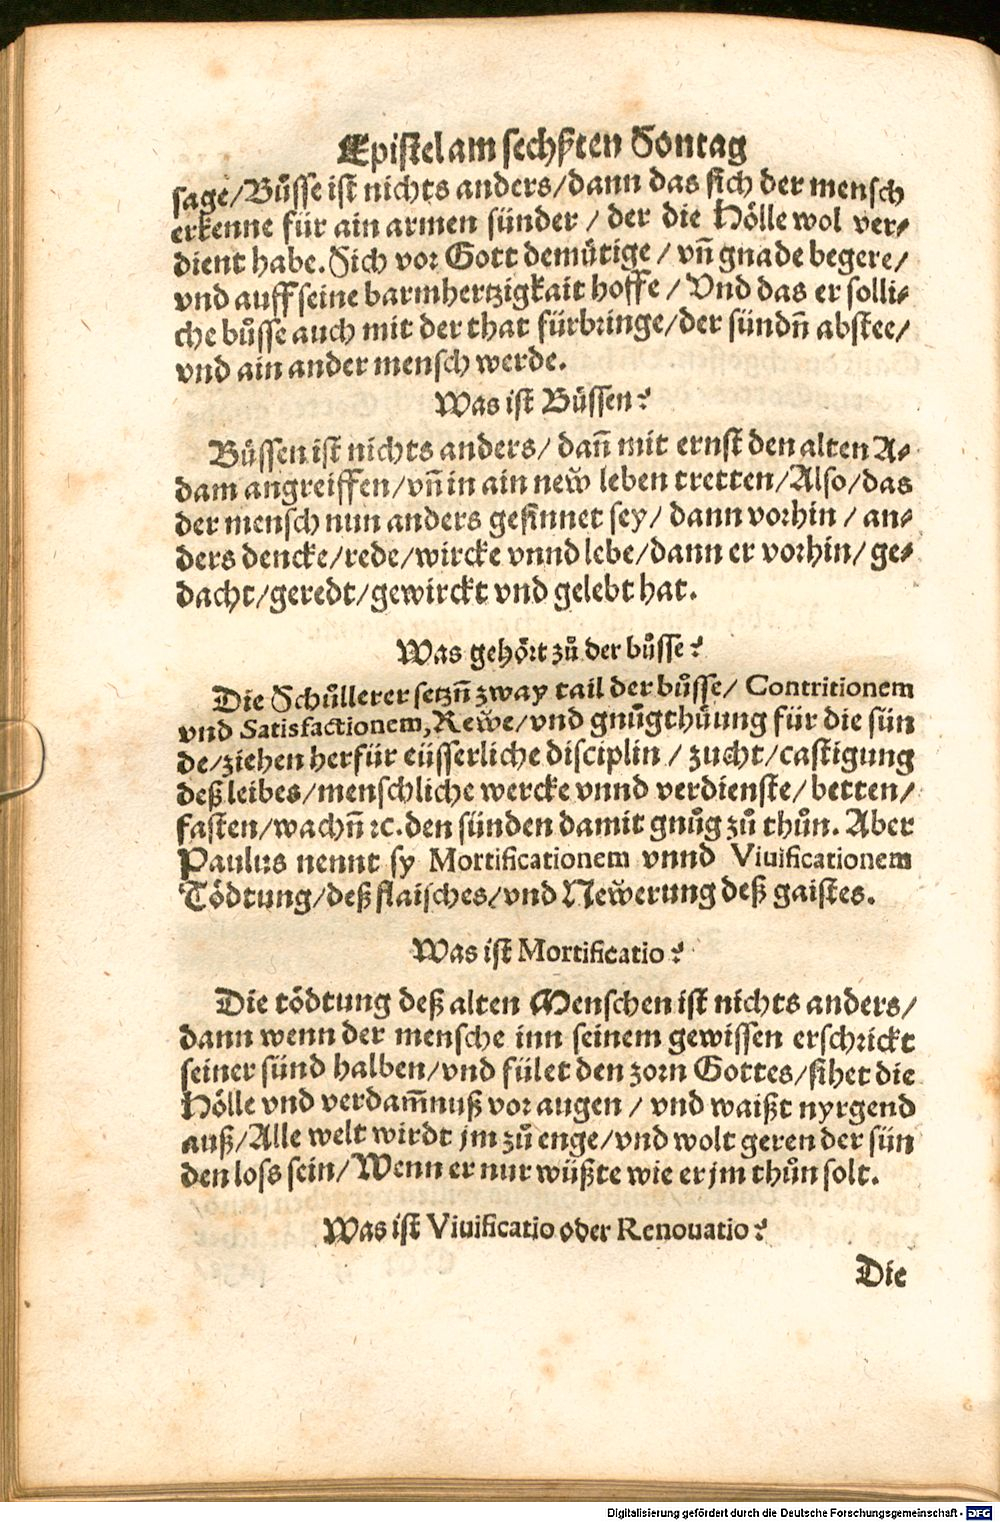 Epistel am sechßten Sontag
sage/Bůsse ist nichts anders/dann das sich der mensch
erkenne für ain armen sünder / der die Hölle wol ver⸗
dient habe. Sich vor Gott demütige / vñ gnade begere/
vnd auff seine barmhertzigkait hoffe / Vnd das er solli⸗
che bůsse auch mit der that fürbringe/der sündñ abstee/
vnd ain ander mensch werde.
Was ist Büssen?
Büssen ist nichts anders/ dañ mit ernst den alten A⸗
dam angreiffen/vñ in ain neẅ leben tretten/Also/das
der mensch nun anders gesinnet sey/ dann vorhin / an⸗
ders dencke/rede/wircke vnnd lebe/dann er vorhin/ ge⸗
dacht/geredt/gewirckt vnd gelebt hat.
Was gehört zů der bůsse?
Die Schůllerer setzñ zway tail der bůsse/ Contritionem
vnd Satisfactionem, Reẅe/vnd gnůgthüung für die sün
de/ziehen herfür eüsserliche disciplin / zucht/castigung
deß leibes/menschliche wercke vnnd verdienste/ betten/
fasten/wachñ ꝛc. den sünden damit gnůg zů thůn. Aber
Paulus nennt sy Mortificationem vnnd Viuificationem
Tödtung/deß flaisches/vnd Neẅerung deß gaistes.
Was ist Mortificatio?
Die tödtung deß alten Menschen ist nichts anders/
dann wenn der mensche inn seinem gewissen erschrickt
seiner sünd halben/vnd fület den zorn Gottes/sihet die
Hölle vnd verdam̃nuß vor augen / vnd waißt nyrgend
auß/Alle welt wirdt jm zů enge/vnd wolt geren der sün
den loss sein/Wenn er nur wüßte wie er jm thůn solt.
Was ist Viuificatio oder Renouatio?
Die
Digitalisierung gefördert durch die Deutsche Forschungsgemeinschaft - DFG